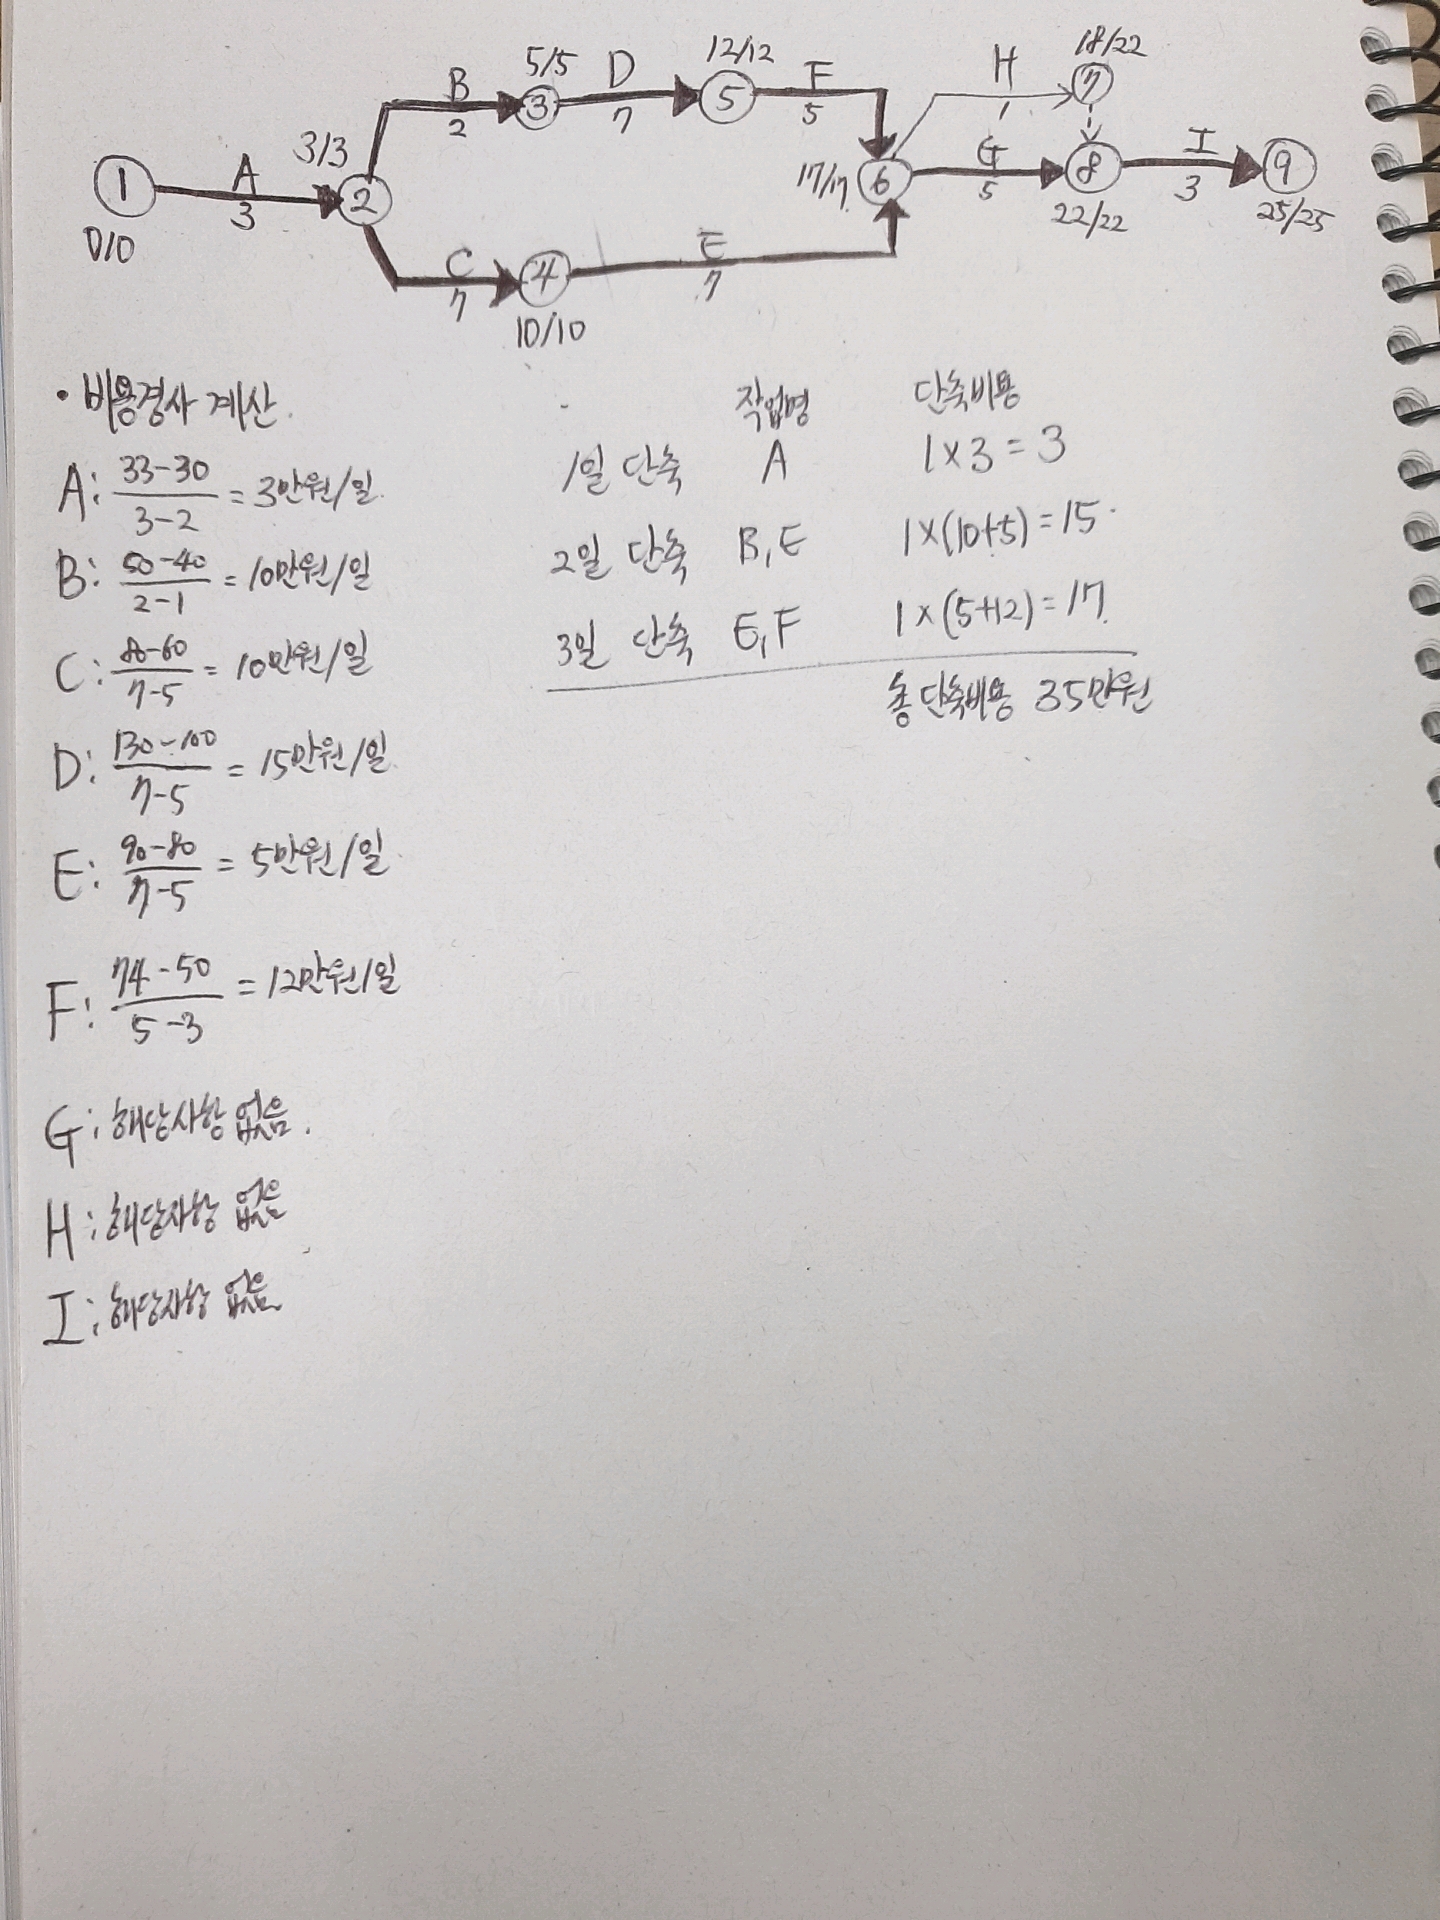 18/22
5/5 D 12/12 F H 7
B 3 5 1
2 7 5
3/3 G I
1 A 2 17/17 6 8 9
3 5 3
0/0 22/22 25/25
C 4 E
7 7
10/10
• 비용경사 계산.
A: 33-30 / 3-2 = 3만원/일.
B: 50-40 / 2-1 = 10만원/일
C: 80-60 / 7-5 = 10만원/일
D: 130-100 / 7-5 = 15만원/일
E: 90-80 / 7-5 = 5만원/일
F: 74-50 / 5-3 = 12만원/일
G: 해당사항 없음.
H: 해당사항 없음
I: 해당사항 없음
작업명 단축비용
1일 단축 A 1×3=3
2일 단축 B,E 1×(10+5)=15
3일 단축 E,F 1×(5+12)=17.
총 단축비용 35만원